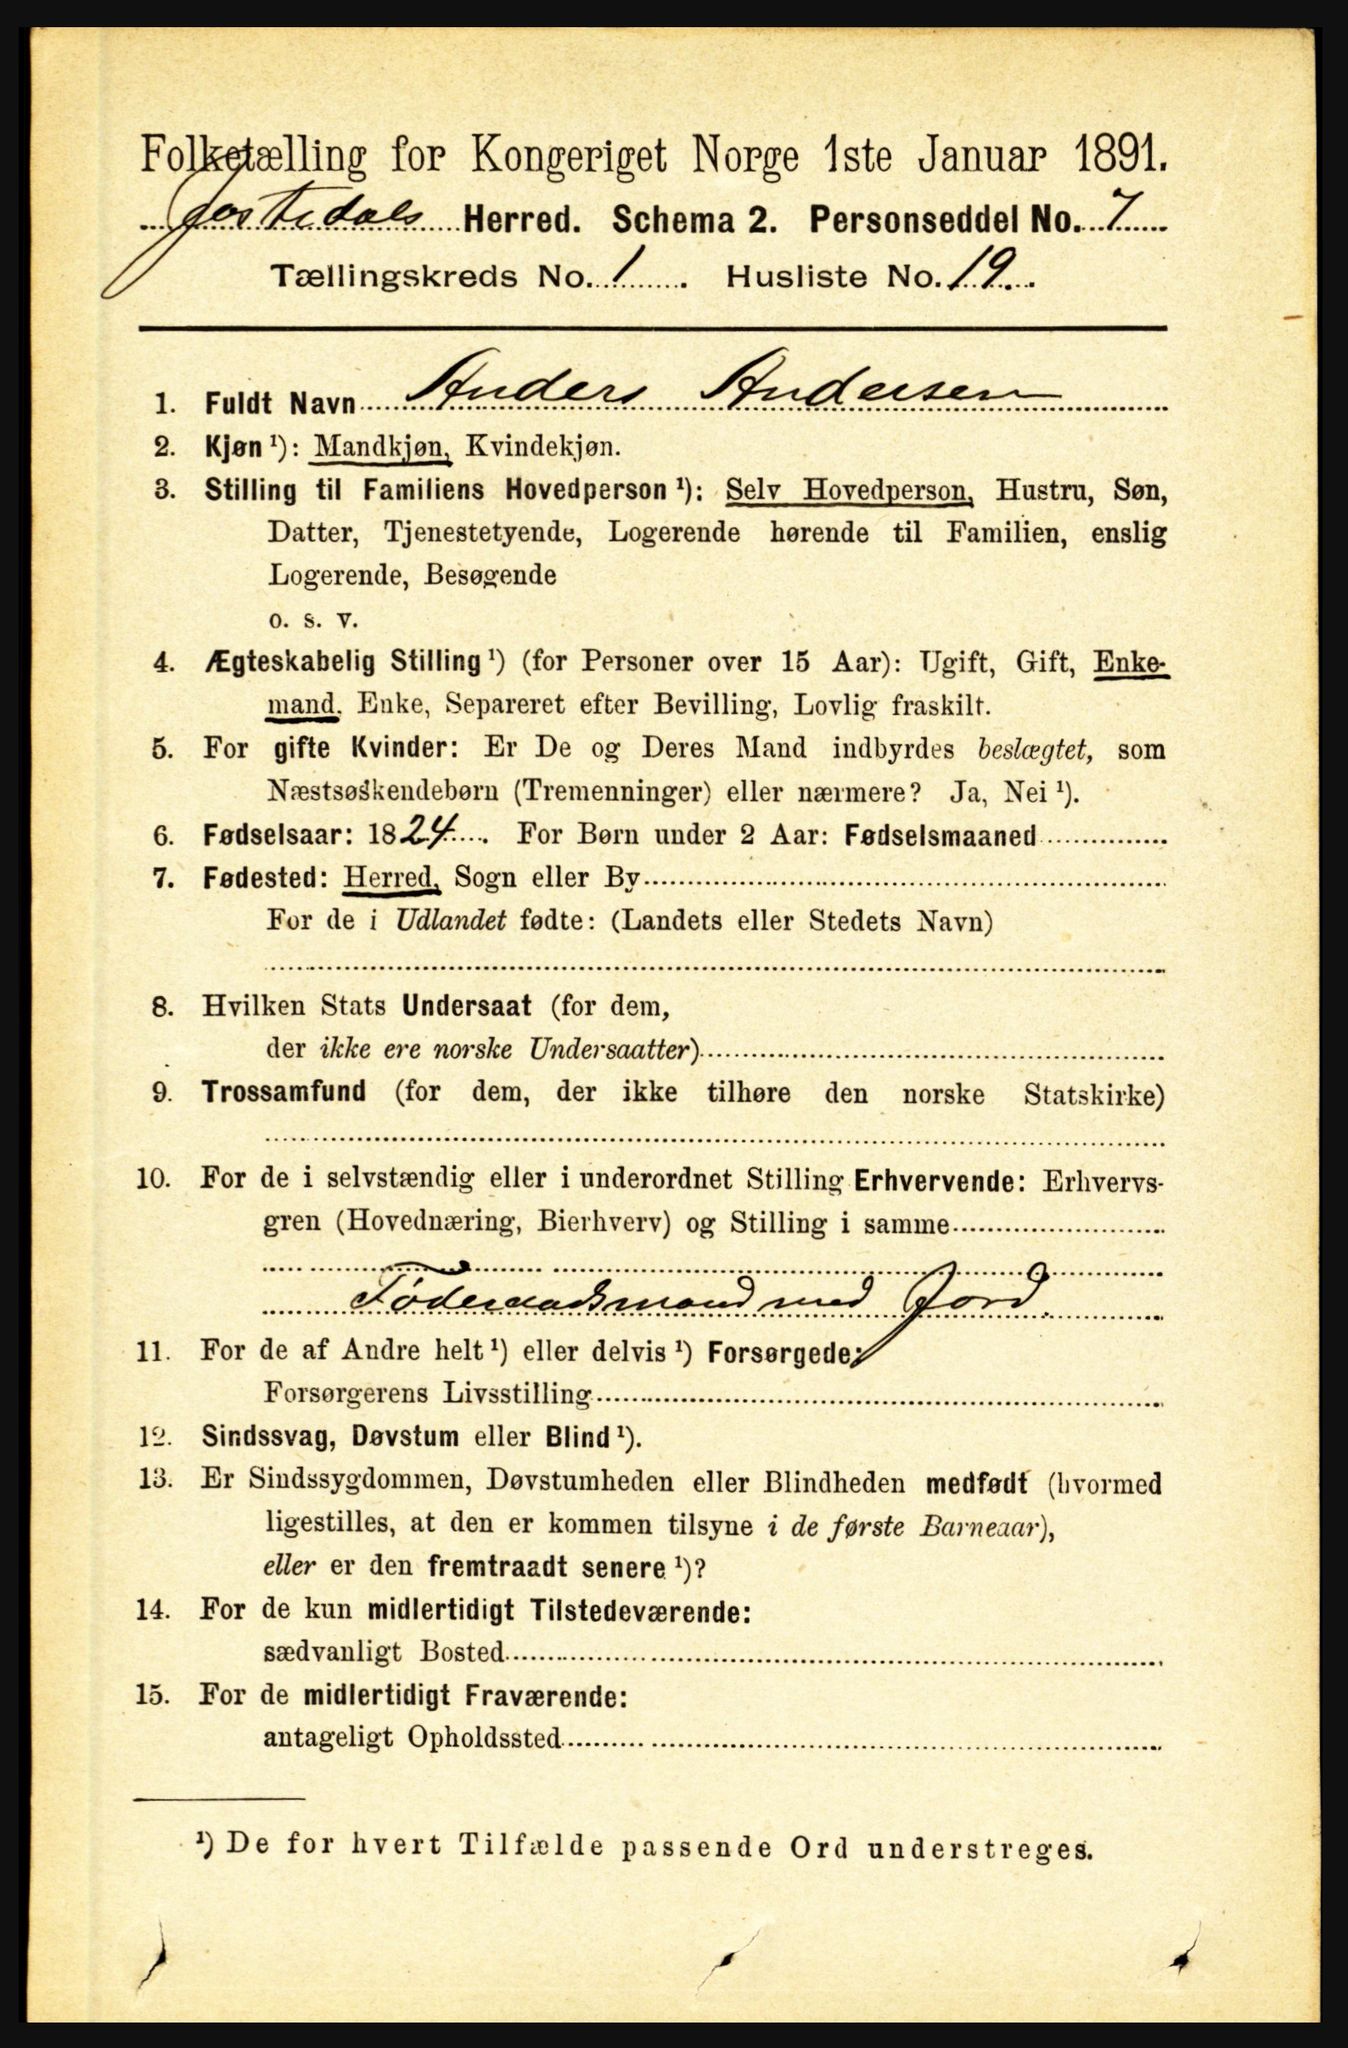 Folketælling for Kongeriget Norge 1ste Januar 1891.
Jostedals Herred. Schema 2. Personseddel No. 7
Tællingskreds No. 1. Husliste No. 19.
1. Fuldt Navn Anders Andersen
2. Kjøn ¹): Mandkjøn, Kvindekjøn.
3. Stilling til Familiens Hovedperson ¹): Selv Hovedperson, Hustru, Søn,
Datter, Tjenestetyende, Logerende hørende til Familien, enslig
Logerende, Besøgende
o. s. v.
4. Ægteskabelig Stilling ¹) (for Personer over 15 Aar): Ugift, Gift, Enke-
mand. Enke, Separeret efter Bevilling, Lovlig fraskilt.
5. For gifte Kvinder: Er De og Deres Mand indbyrdes beslægtet, som
Næstsøskendebørn (Tremenninger) eller nærmere? Ja, Nei ¹).
6. Fødselsaar: 1824. For Børn under 2 Aar: Fødselsmaaned
7. Fødested: Herred, Sogn eller By
For de i Udlandet fødte: (Landets eller Stedets Navn)
8. Hvilken Stats Undersaat (for dem,
der ikke ere norske Undersaatter)
9. Trossamfund (for dem, der ikke tilhøre den norske Statskirke)
10. For de i selvstændig eller i underordnet Stilling Erhvervende: Erhvervs-
gren (Hovednæring, Bierhverv) og Stilling i samme
Føderaadsmand med Jord.
11. For de af Andre helt ¹) eller delvis ¹) Forsørgede:
Forsørgerens Livsstilling
12. Sindssvag, Døvstum eller Blind ¹).
13. Er Sindssygdommen, Døvstumheden eller Blindheden medfødt (hvormed
ligestilles, at den er kommen tilsyne i de første Barneaar),
eller er den fremtraadt senere ¹)?
14. For de kun midlertidigt Tilstedeværende:
sædvanligt Bosted
15. For de midlertidigt Fraværende:
antageligt Opholdssted
¹) De for hvert Tilfælde passende Ord understreges.